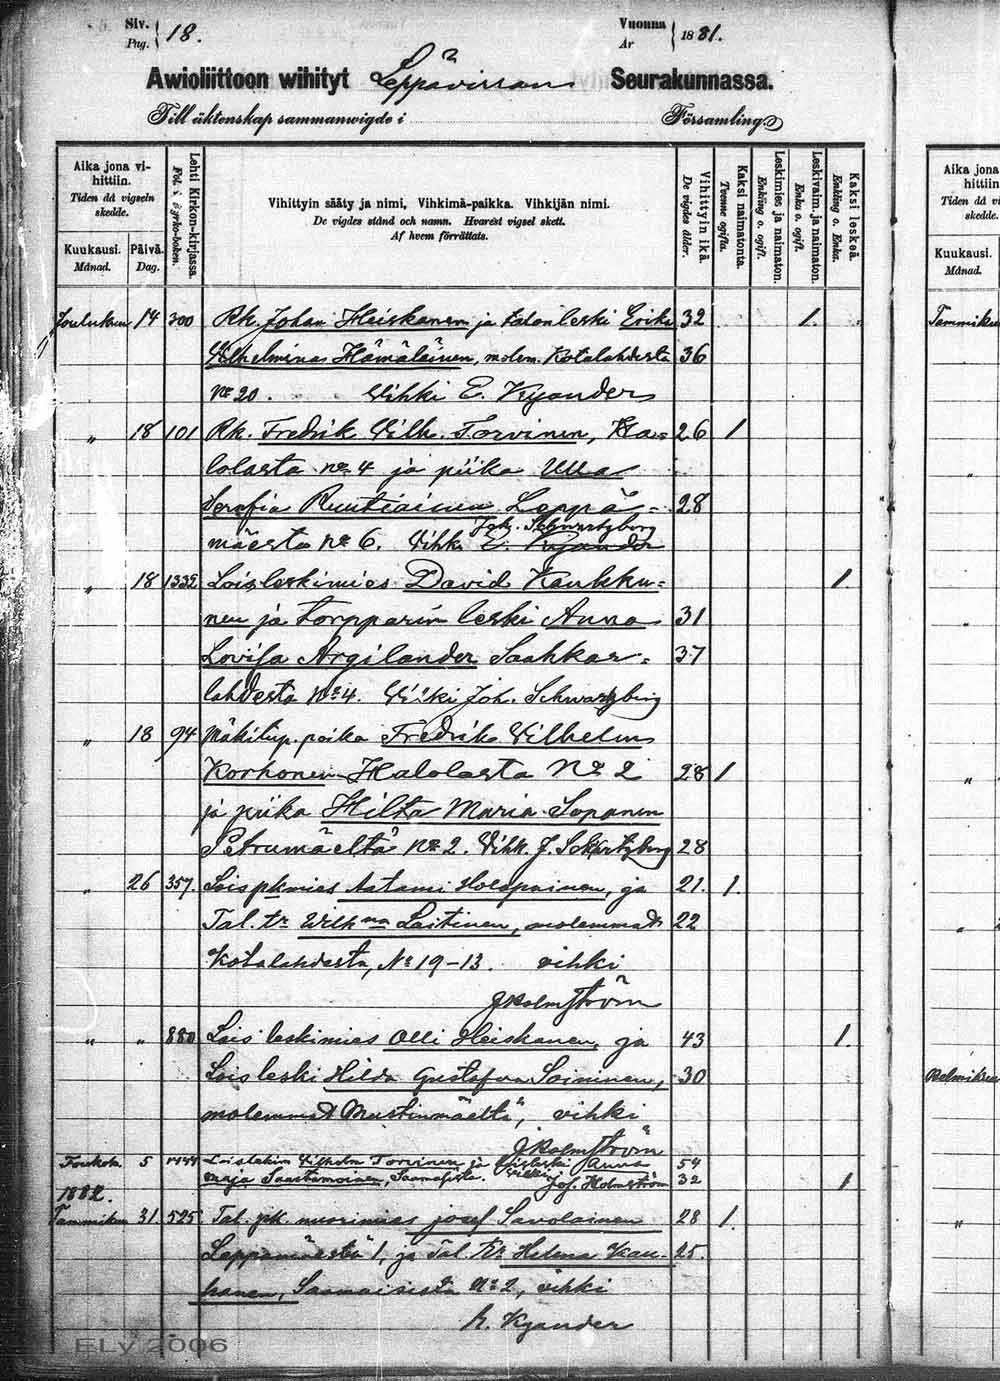 Siv. Pag. 18.
Vuonna År 1881.
Awioliittoon wihityt Leppävirran Seurakunnassa.
Till äktenskap sammanwigde i Församling.
Aika jona vihittiin.
Tiden då vigseln skedde.
Kuukausi. Månad.
Päivä. Dag.
Lehti Kirkon-kirjassa.
Fol. i Kyrko-boken.
Vihittyin sääty ja nimi, Vihkimä-paikka. Vihkijän nimi.
De vigdes stånd och namn. Hvarest vigsel skett.
Af hvem förrättats.
Vihittyin ikä.
De vigdes ålder.
Kaksi naimatonta.
Tvenne ogifta.
Leskimies ja naimaton.
Enkling o. ogift.
Leskivaimo ja naimaton.
Enka o. ogift.
Kaksi leskeä.
Enkling o. Enka.
Joulukuu 14 300 Rk. Johan Heiskanen ja talonleski Erika 32 1.
Vilhelmina Hämäläinen, molem. Kotalahdesta 36
No 20. Vihki E. Kyander
" 18 101 Rk. Fredrik Vilh. Torvinen, Ha= 26 1
lolasta no 4 ja piika Ulla
Serafia Ruutiainen Leppä= 28
Joh. Schwartzberg
mäestä No 6. Vihk. E. Kyander
" 18 1332 Lois leskimies David Kaukku= 1.
nen ja torpparin leski Anna 31
Lovisa Argilander Saahkar= 37
lahdesta No 4. Vihki Joh. Schwartzberg
" 18 94 Mäkitup. poika Fredrik Vilhelm
Korhonen Halolasta No 2 28 1
ja piika Hilta Maria Sopanen
Petrumäeltä No 2. Vihk. J. Schwartzberg 28
" 26 357. Lois pkmies Aatami Holopainen, ja 21. 1.
Tal. tr Wilhna Laitinen, molemmat 22
Kotalahdesta, No 19-13. vihki
J Holmström
" " 880 Lois leskimies Olli Heiskanen, ja 43 1.
Lois leski Hilda Gustafva Soininen, 30
molemmat Mustinmäeltä, vihki
J Holmström
Toukok. 5 Loisleskim Vilhelm Torvinen ja loisleski Anna 54
Maja Saastamoinen, Saamaista. Vihki Jos. Holmström 32 1
1882.
Tammikuu 31 525 Tal. pk. nuorimies Josef Savolainen 28 1.
Leppämäestä 1, ja Tal. tr. Helena Kau- 25.
hanen, Saamaisista No 2, vihki
A. Kyander
ELy 2006
Aika jona
vihittiin
Tiden då vi
skedde.
Kuukausi.
Månad.
Tammikuu
"
"
"
"
Helmikuu
"